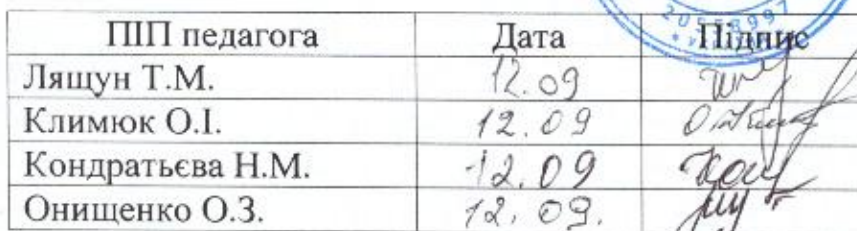 20558997
ПІП педагога Дата Підпис
Лящун Т.М. 12.09
Климюк О.І. 12.09
Кондратьєва Н.М. 12.09
Онищенко О.З. 12.09.